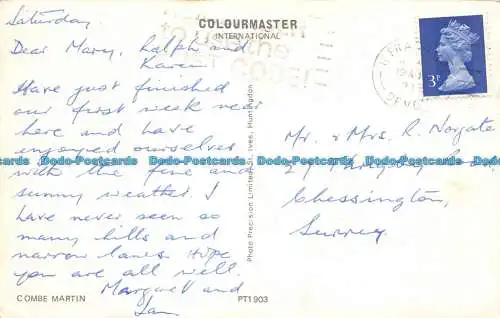 Saturday.
COLOURMASTER
INTERNATIONAL
Dear Mary, Ralph and
Karen
Have just finished
our first week near
here and have
enjoyed ourselves
with the fine and
sunny weather. I
have never seen so
many hills and
narrow lanes. Hope
you are all well.
Margaret and
Ian
COMBE MARTIN
PT1903
Photo Precision Limited, St. Ives, Huntingdon
3P
DEVON
Mr. & Mrs. R. Norgate
27
Chessington,
Surrey.
Dodo-Postcards Dodo-Postcards Dodo-Postcards Dodo-Postcards Dodo-Postcards Dodo-Postcards